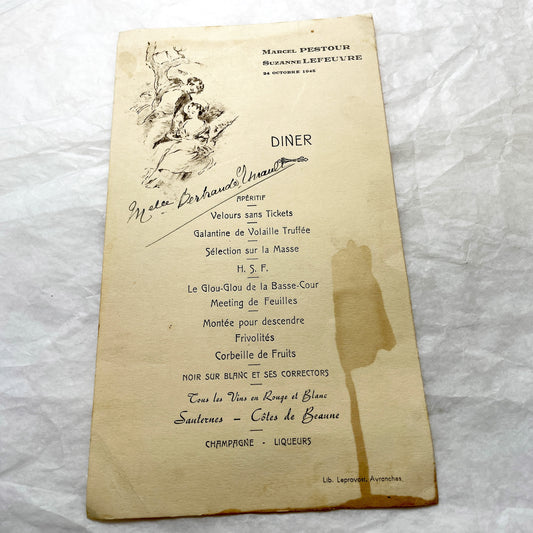 MARCEL PESTOUR
SUZANNE LEFEUVRE
24 OCTOBRE 1945
DINER
Melle Bertrande
APÉRITIF
Velours sans Tickets
Galantine de Volaille Truffée
Sélection sur la Masse
H. S. F.
Le Glou-Glou de la Basse-Cour
Meeting de Feuilles
Montée pour descendre
Frivolités
Corbeille de Fruits
NOIR SUR BLANC ET SES CORRECTORS
Tous les Vins en Rouge et Blanc
Sauternes — Côtes de Beaune
CHAMPAGNE - LIQUEURS
Lib. Leprovost, Avranches